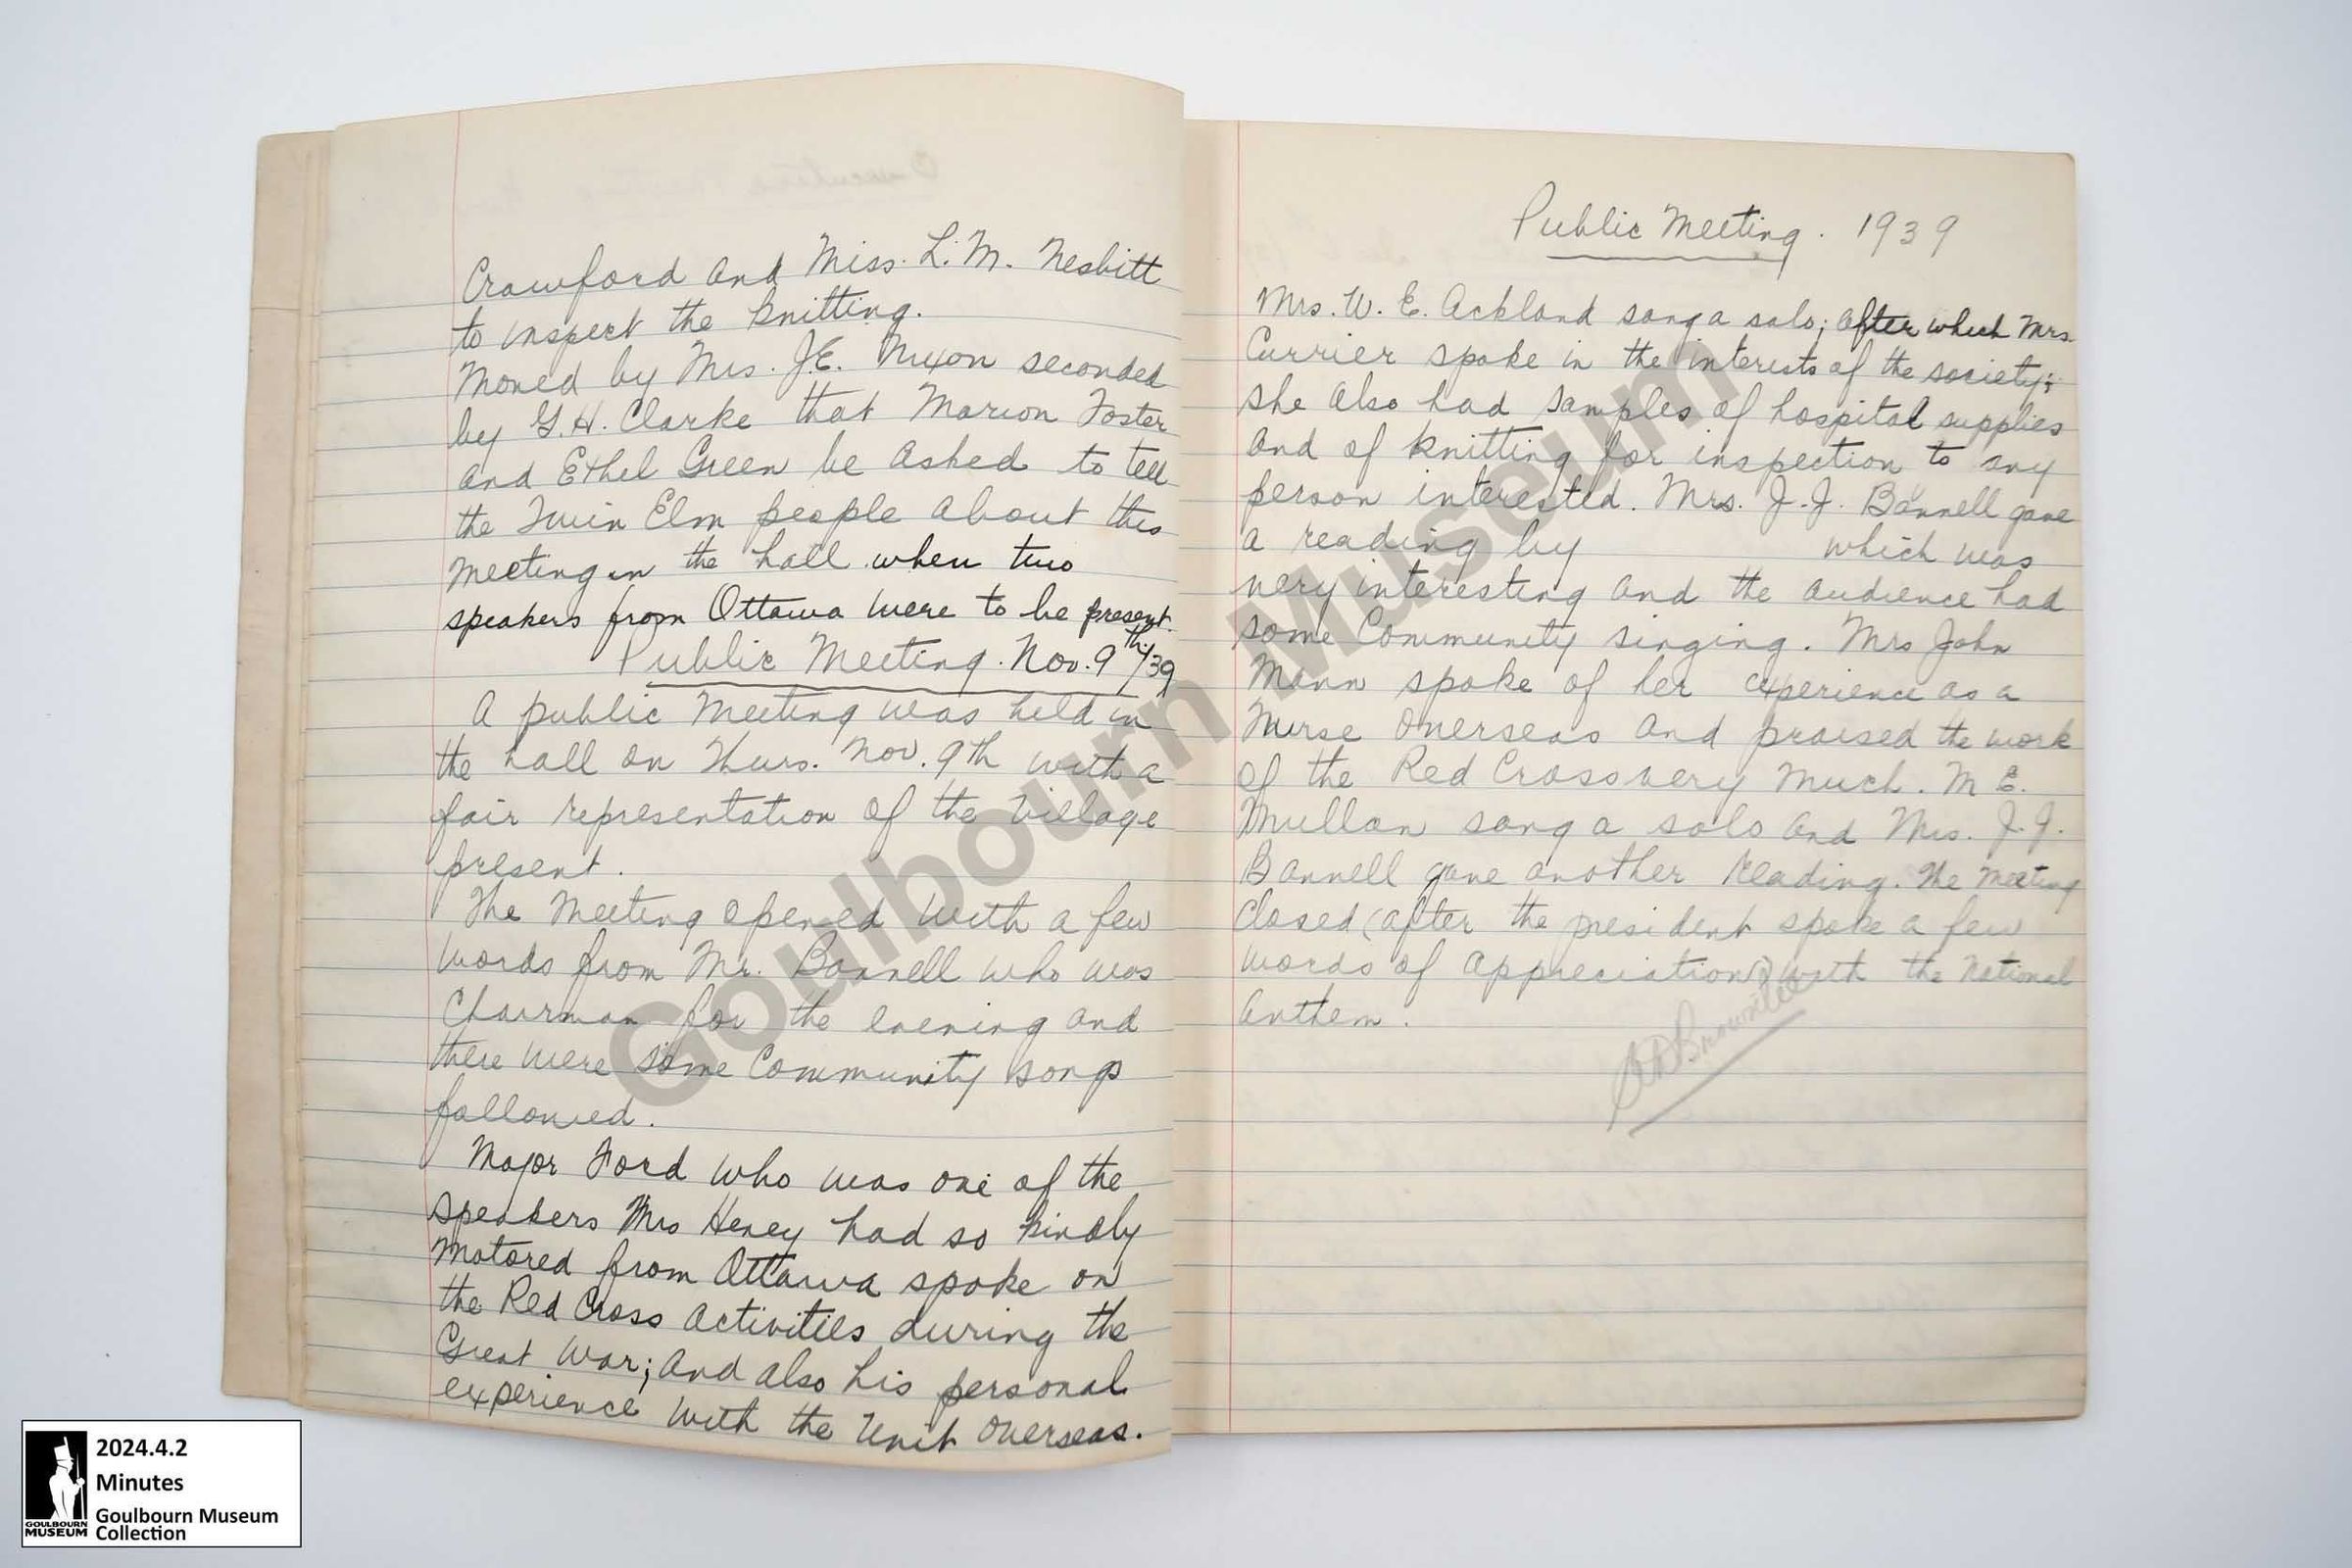 Crawford and Miss. L. M. Nesbitt
to inspect the knitting.
Moved by Mrs. J.E. Nixon seconded
by G. H. Clarke that Marion Foster
and Ethel Green be asked to tell
the Twin Elm people about this
meeting in the hall when two
speakers from Ottawa were to be present.
Public Meeting. Nov. 9th/39
A public meeting was held in
the hall on Thurs. Nov. 9th with a
fair representation of the village
present.
The meeting opened with a few
words from Mr. Bannell who was
Chairman for the evening and
there were some Community songs
followed.
Major Ford who was one of the
speakers Mrs Heney had so kindly
motored from Ottawa spoke on
the Red Cross activities during the
Great War; and also his personal
experience with the Unit overseas.
Public Meeting. 1939
Mrs. W. E. Ackland sang a solo; after which Mrs.
Currier spoke in the interests of the society;
she also had samples of hospital supplies
and of knitting for inspection to any
person interested. Mrs. J. J. Bannell gave
a reading by which was
very interesting and the audience had
some Community singing. Mrs John
Mann spoke of her experience as a
Nurse overseas and praised the work
of the Red Cross very much. M E.
Mullan sang a solo and Mrs. J. J.
Bannell gave another reading. The meeting
closed (after the president spoke a few
words of appreciation) with the National
Anthem.
Brownlee
Goulbourn Museum
2024.4.2
Minutes
Goulbourn Museum
Collection
GOULBOURN
MUSEUM